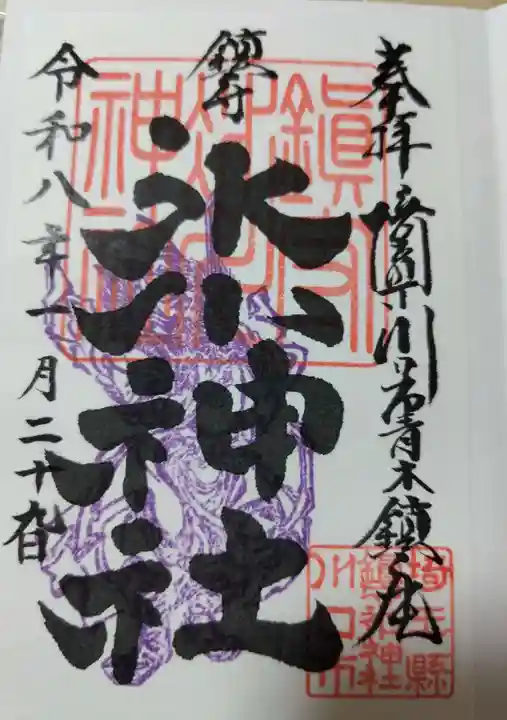 奉拝 埼玉県川口市青木鎮座
鎮守
氷川神社
令和八年一月二十九日
鎮守氷川神社
埼玉縣
鎮守氷川神社
川口市